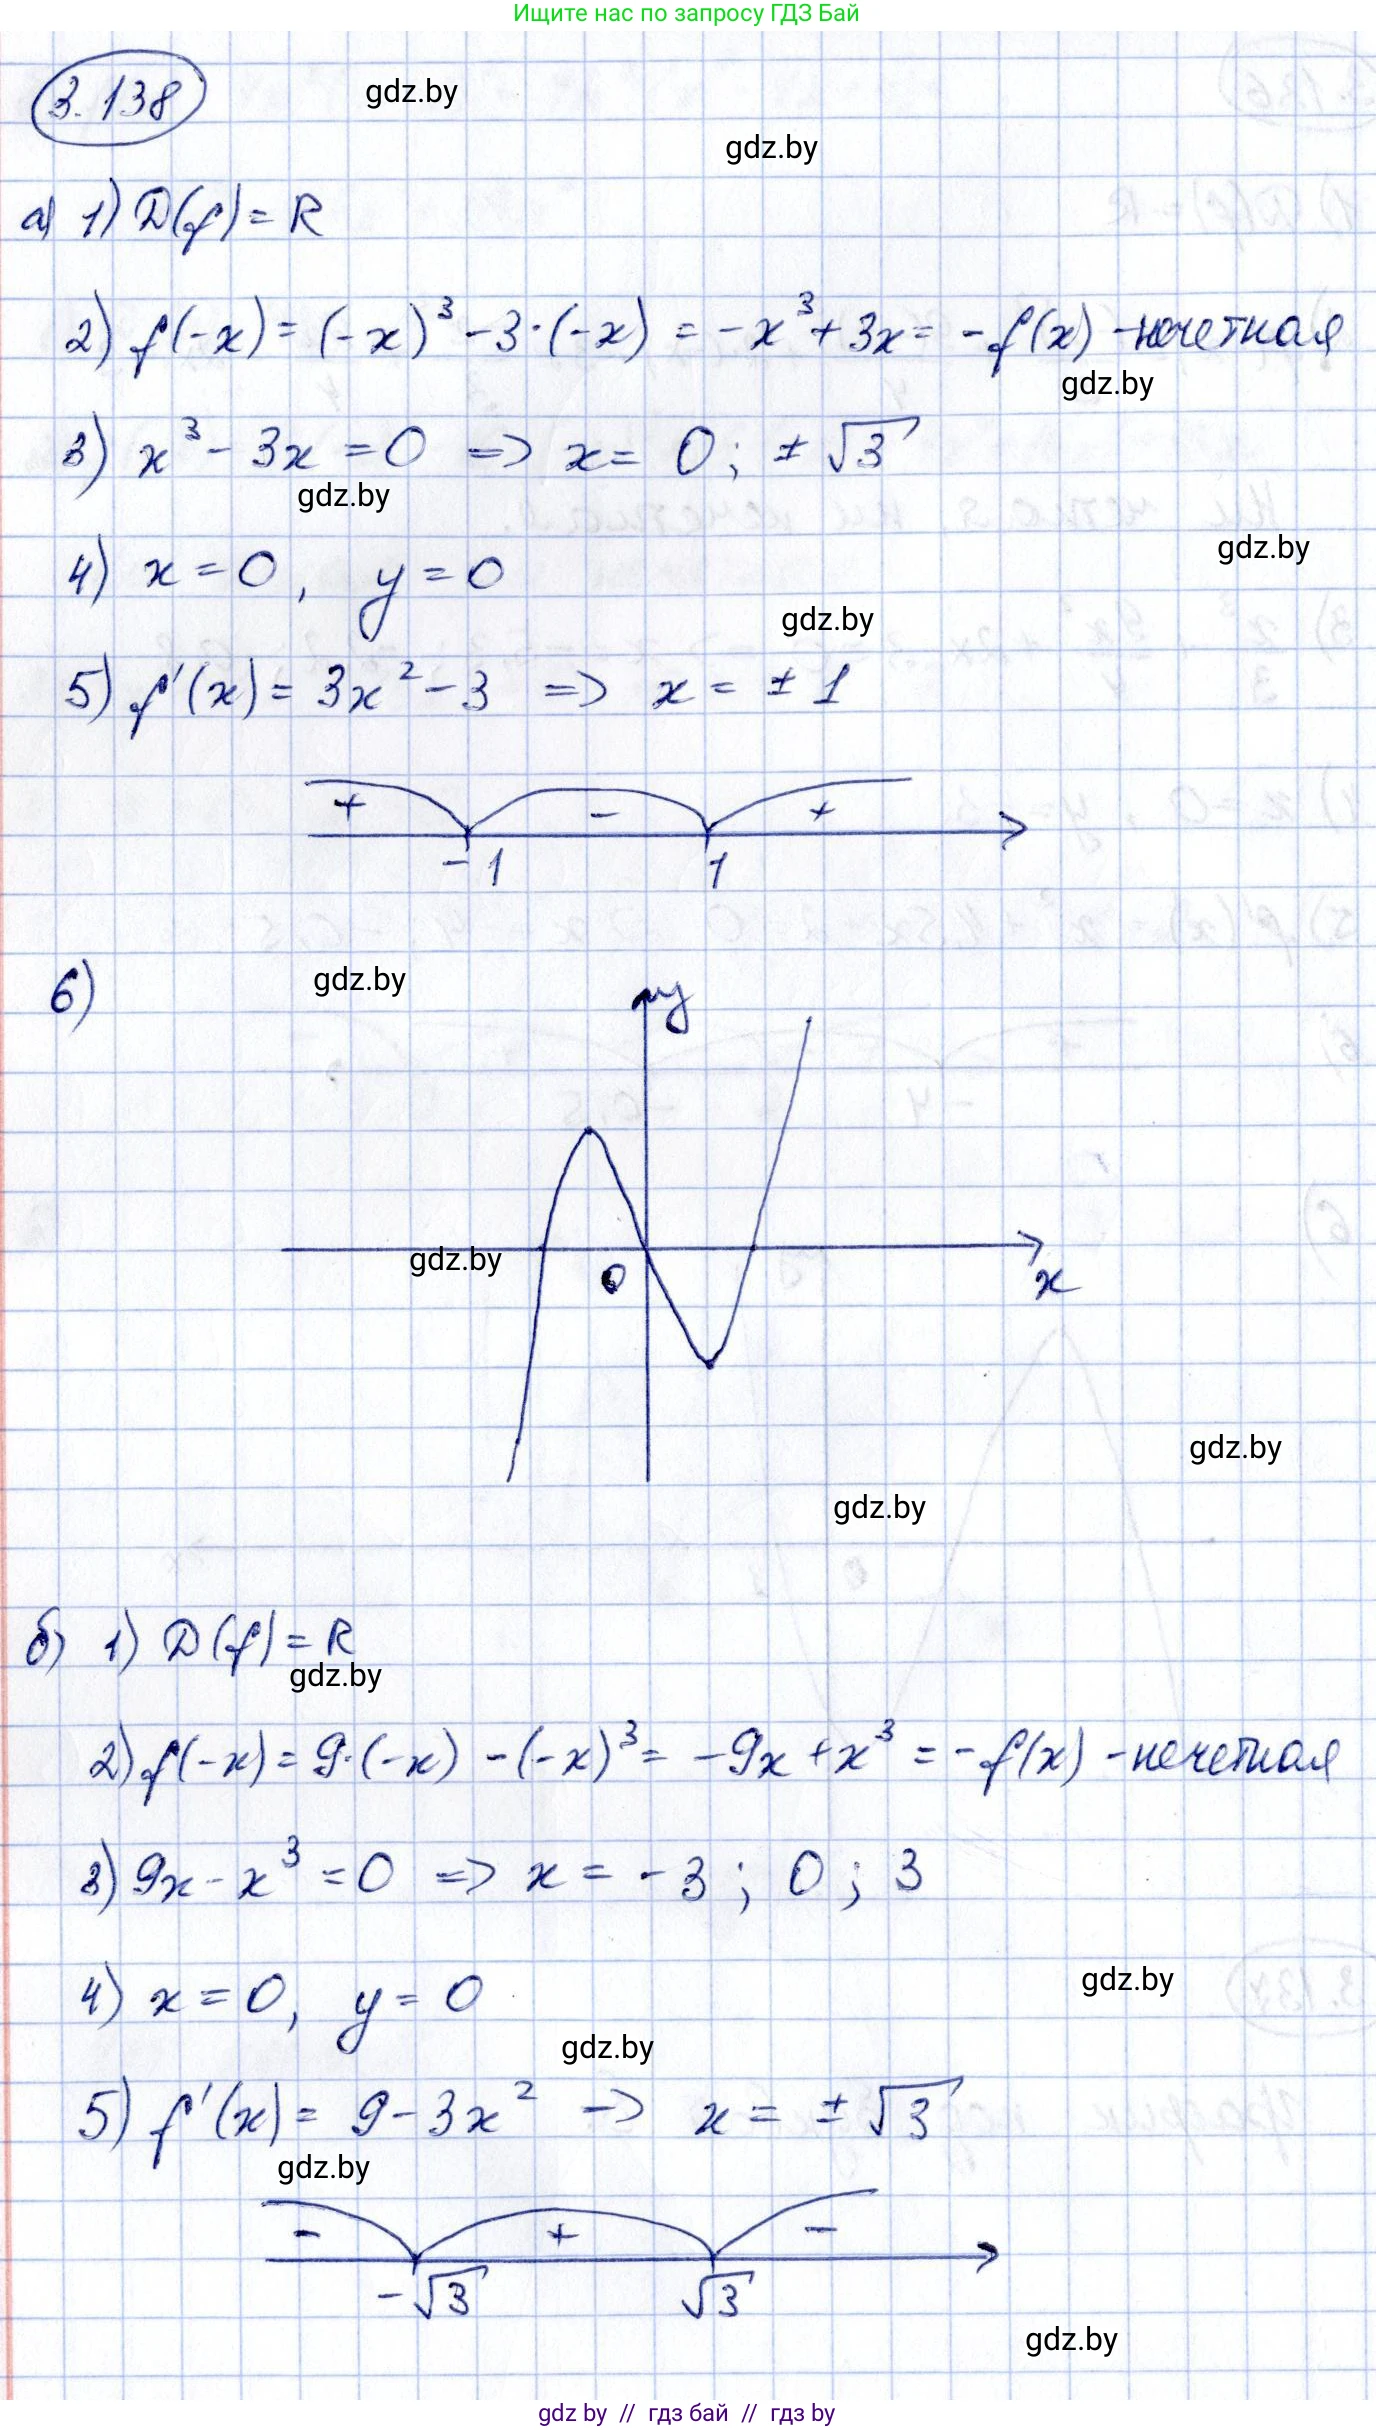 Ищите нас по запросу ГДЗ Бай
3.138
gdz.by
gdz.by
а) 1) D(f) = R
2) f(-x) = (-x)³ - 3·(-x) = -x³ + 3x = -f(x) - нечетная
gdz.by
3) x³ - 3x = 0 => x = 0; ± √3
gdz.by
gdz.by
4) x = 0, y = 0
gdz.by
5) f'(x) = 3x² - 3 => x = ± 1
+ - +
-1 1
6)
gdz.by
y
gdz.by
0
x
gdz.by
gdz.by
б) 1) D(f) = R
gdz.by
2) f(-x) = 9·(-x) - (-x)³ = -9x + x³ = -f(x) - нечетная
3) 9x - x³ = 0 => x = -3; 0; 3
gdz.by
4) x = 0, y = 0
gdz.by
5) f'(x) = 9 - 3x² -> x = ± √3
gdz.by
- + -
-√3 √3
gdz.by
gdz by // гдз бай // гдз by